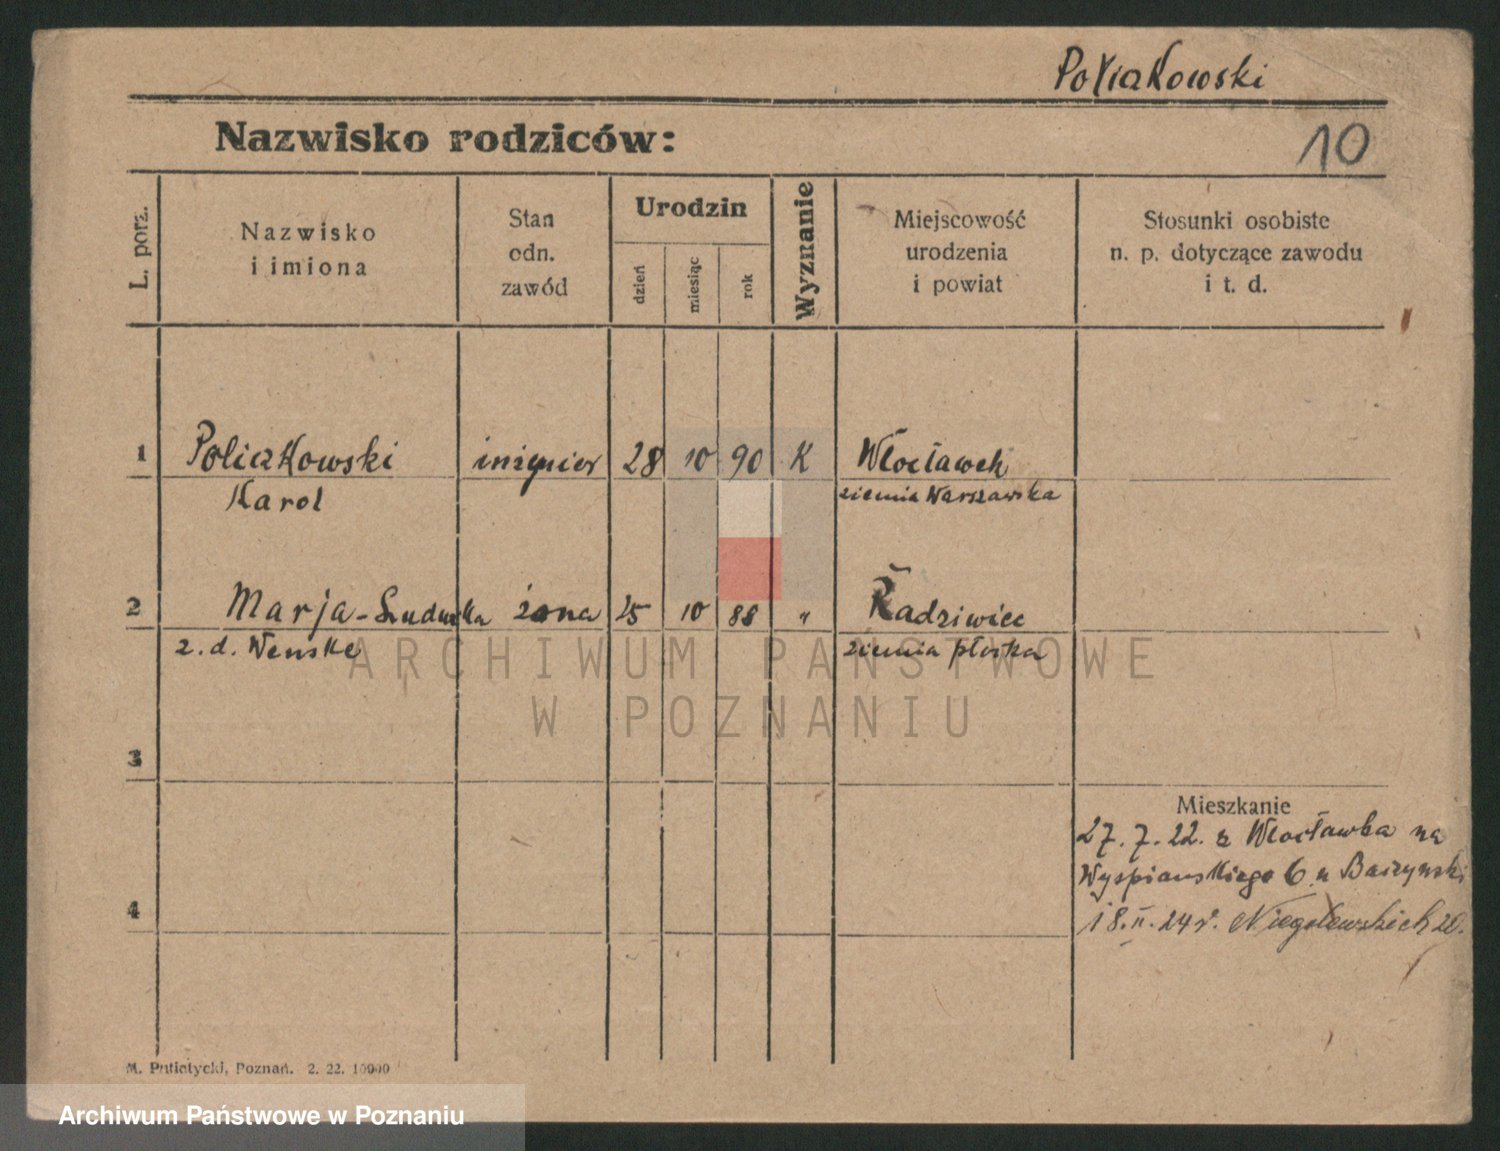 Poliakowski
Nazwisko rodziców:
10
L. porz.
Nazwisko
i imiona
Stan
odn.
zawód
Urodzin
dzień
miesiąc
rok
Wyznanie
Miejscowość
urodzenia
i powiat
Stosunki osobiste
n. p. dotyczące zawodu
i t. d.
1 Poliakowski inżynier 28 10 90 K Włocławek
Karol ziemia Warszawska
2 Marja-Ludwika żona 25 10 88 " Radziwiec
z. d. Wenske ziemia płocka
ARCHIWUM PAŃSTWOWE
W POZNANIU
3
Mieszkanie
27. 7. 22. z Włocławka na
Wyspiańskiego 6 u Baczyński
4
18. II. 24 r. Niegolewskich 20.
M. Putiatycki, Poznań. 2. 22. 10000
Archiwum Państwowe w Poznaniu